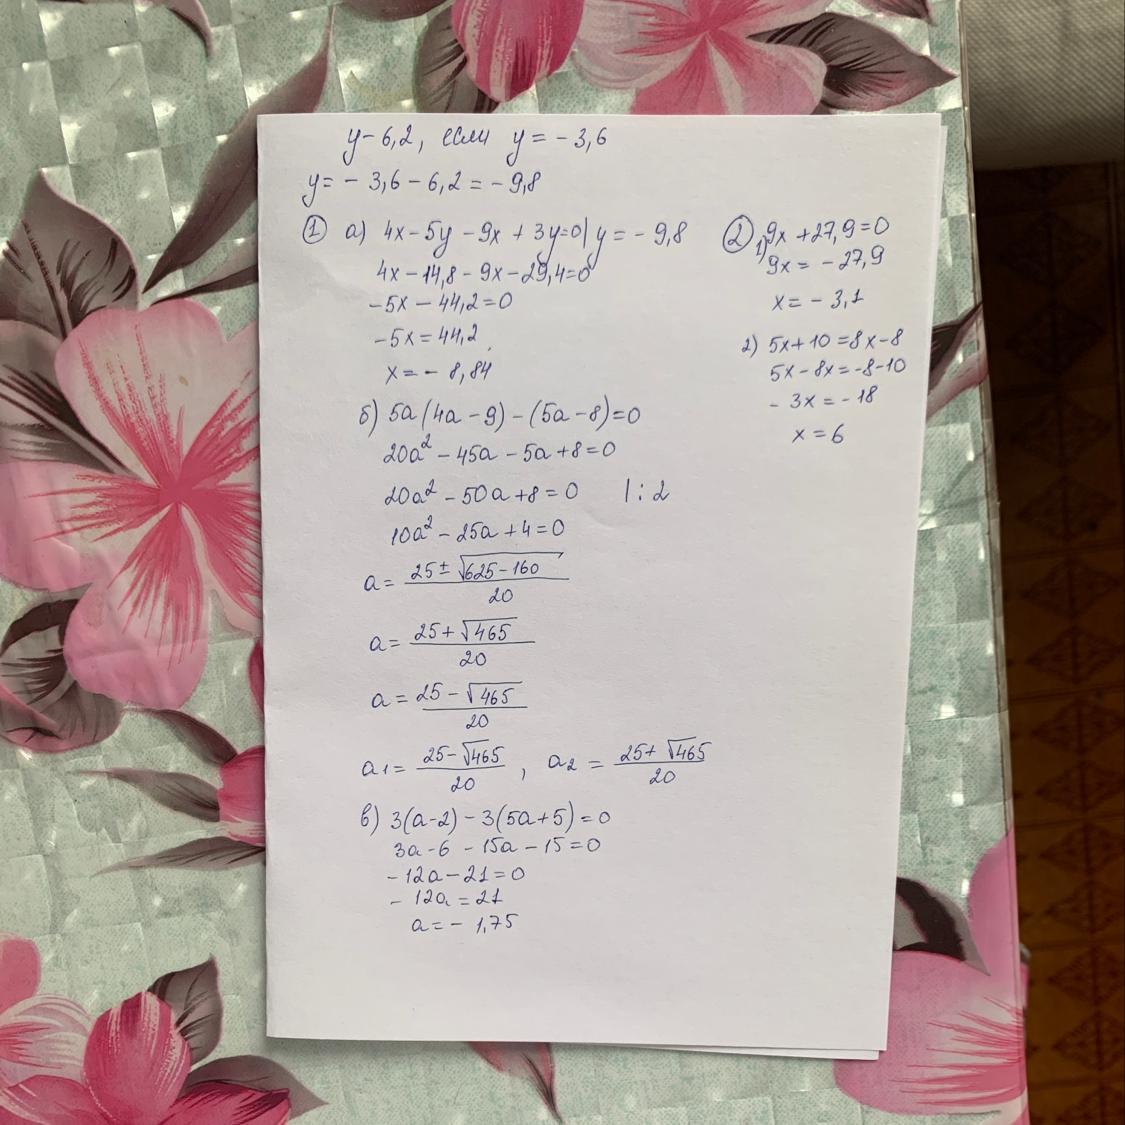 y-6,2, если y = - 3,6
y= - 3,6 - 6,2 = - 9,8
① а) 4x - 5y - 9x + 3y=0 | y = - 9,8
4x - 14,8 - 9x - 29,4=0
-5x - 44,2=0
-5x = 44,2
x = - 8,84
б) 5a (4a - 9) - (5a - 8)=0
20a² - 45a - 5a + 8 = 0
20a² - 50a + 8 = 0 | : 2
10a² - 25a + 4 = 0
a = (25 ± √625 - 160) / 20
a = (25 + √465) / 20
a = (25 - √465) / 20
a₁ = (25 - √465) / 20 , a₂ = (25 + √465) / 20
в) 3(a-2) - 3(5a+5) = 0
3a - 6 - 15a - 15 = 0
- 12a - 21 = 0
- 12a = 21
a = - 1,75
② 1) 9x + 27,9 = 0
9x = - 27,9
x = - 3,1
2) 5x + 10 = 8x - 8
5x - 8x = -8 - 10
- 3x = - 18
x = 6